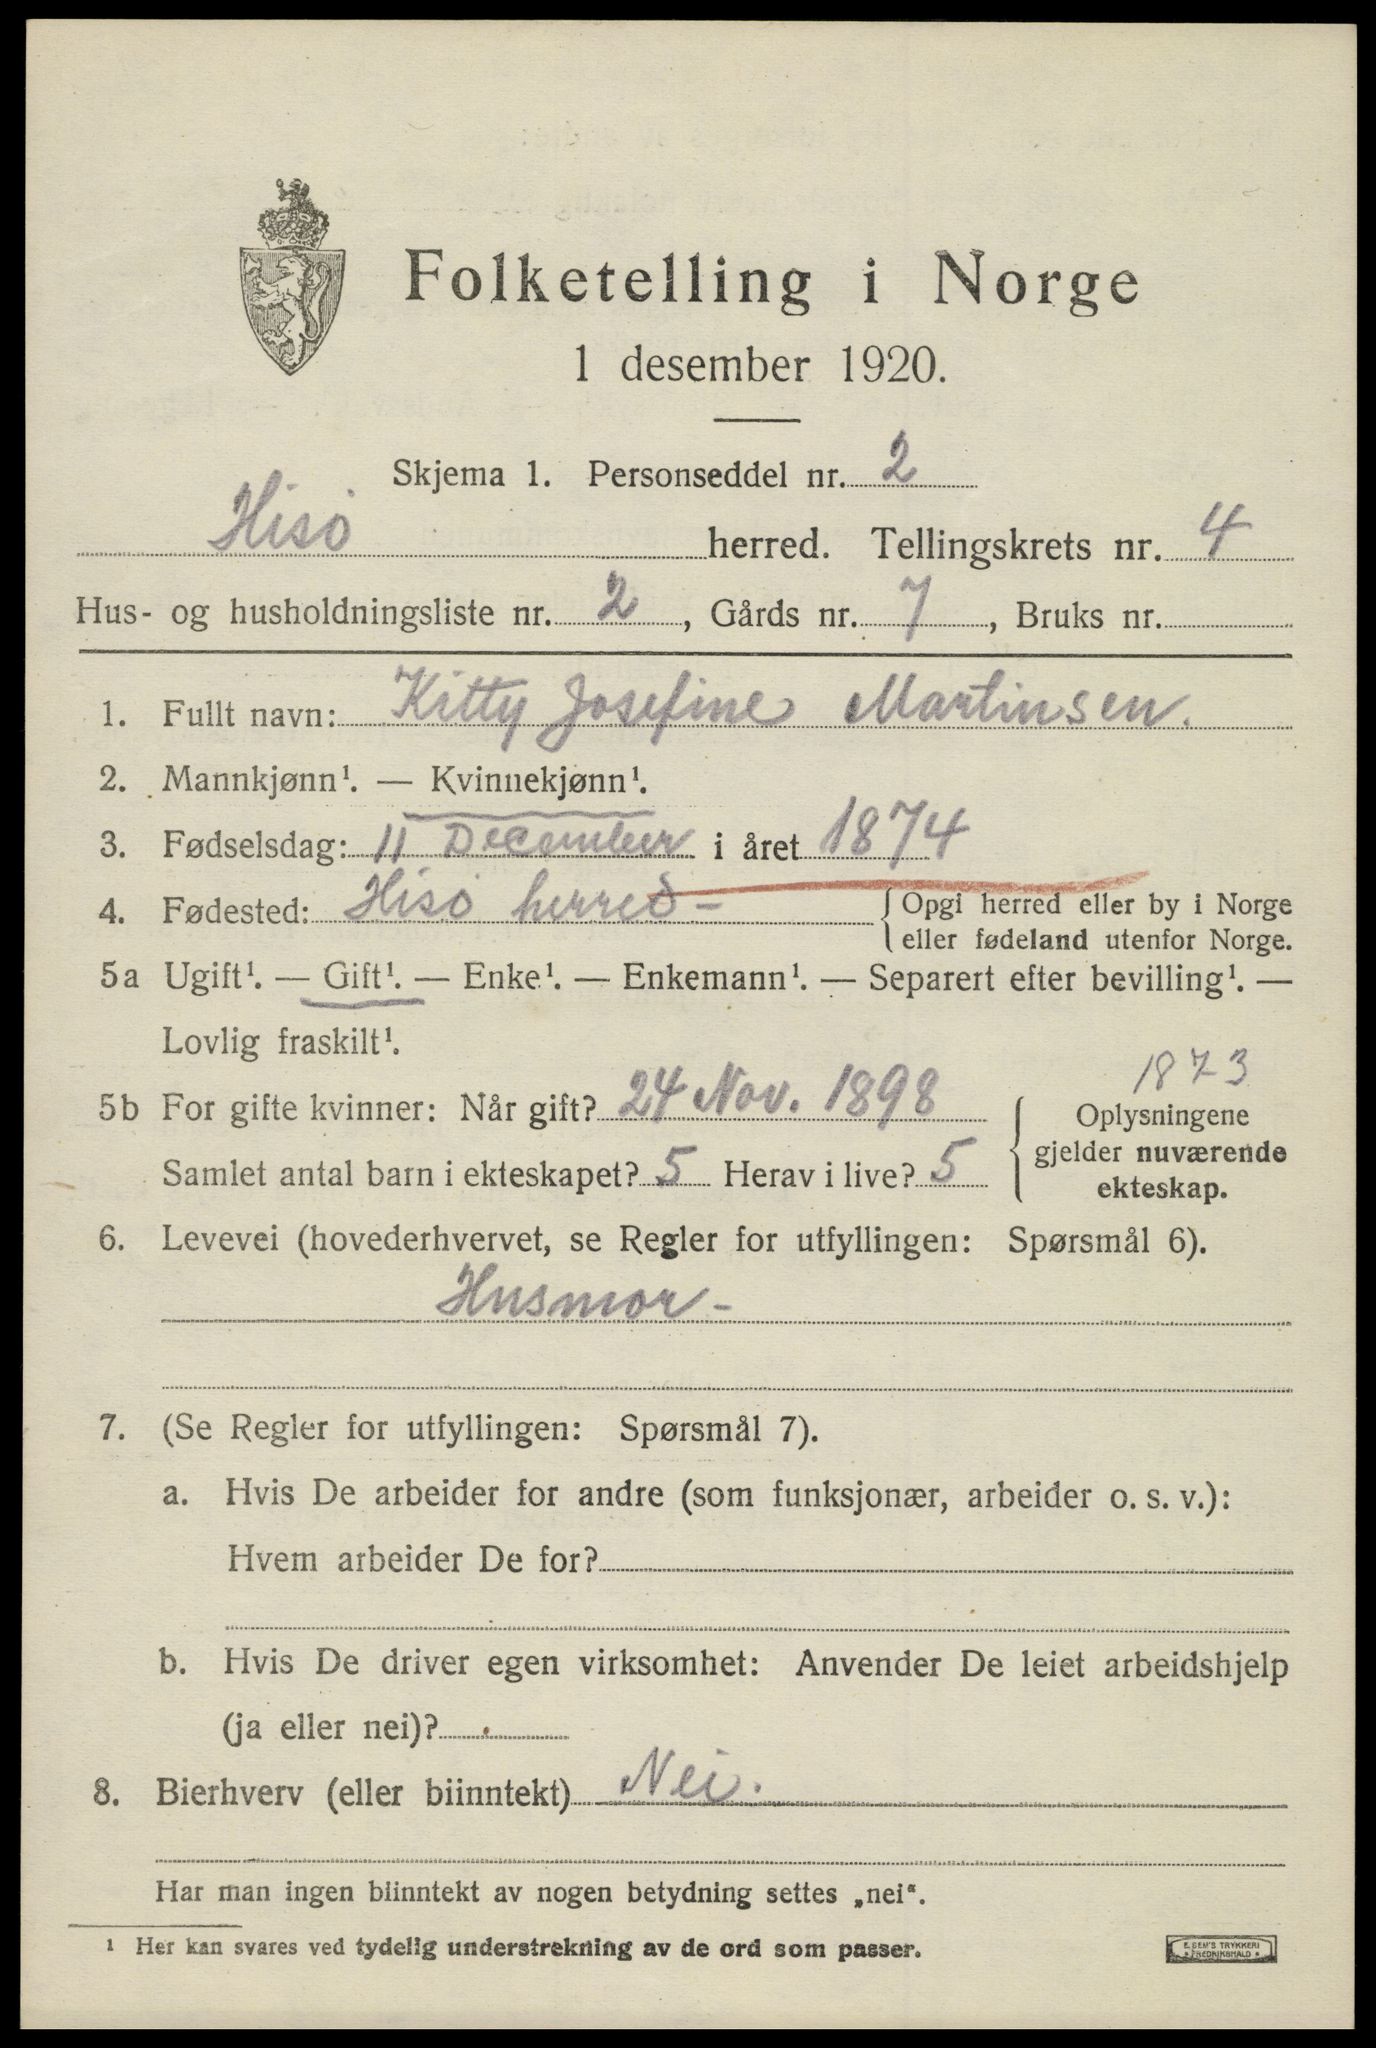 Folketelling i Norge
1 desember 1920.
Skjema 1. Personseddel nr. 2
Hisø herred. Tellingskrets nr. 4
Hus- og husholdningsliste nr. 2, Gårds nr. 7, Bruks nr.
1. Fullt navn: Kitty Josefine Martinsen.
2. Mannkjønn¹. — Kvinnekjønn¹.
3. Fødselsdag: 11 December i året 1874
4. Fødested: Hisø herred - Opgi herred eller by i Norge
eller fødeland utenfor Norge.
5a Ugift¹. — Gift¹. — Enke¹. — Enkemann¹. — Separert efter bevilling¹. —
Lovlig fraskilt¹.
1873
5b For gifte kvinner: Når gift? 24 Nov. 1898 Oplysningene
gjelder nuværende
Samlet antal barn i ekteskapet? 5 Herav i live? 5 ekteskap.
6. Levevei (hovederhvervet, se Regler for utfyllingen: Spørsmål 6).
Husmor -
7. (Se Regler for utfyllingen: Spørsmål 7).
a. Hvis De arbeider for andre (som funksjonær, arbeider o. s. v.):
Hvem arbeider De for?
b. Hvis De driver egen virksomhet: Anvender De leiet arbeidshjelp
(ja eller nei)?
8. Bierhverv (eller biinntekt) Nei.
Har man ingen biinntekt av nogen betydning settes „nei“.
¹ Her kan svares ved tydelig understrekning av de ord som passer.
E. SEM'S TRYKKERI
FREDRIKSHALD